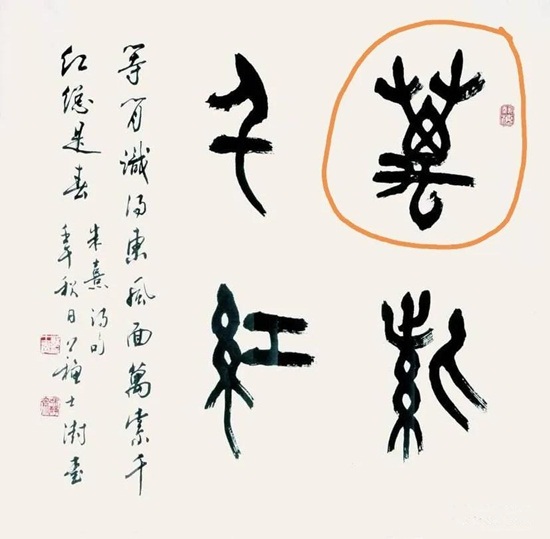 萬紫
千紅
等閒識得東風面萬紫千
紅總是春
朱熹詩句
秋日 士澍書